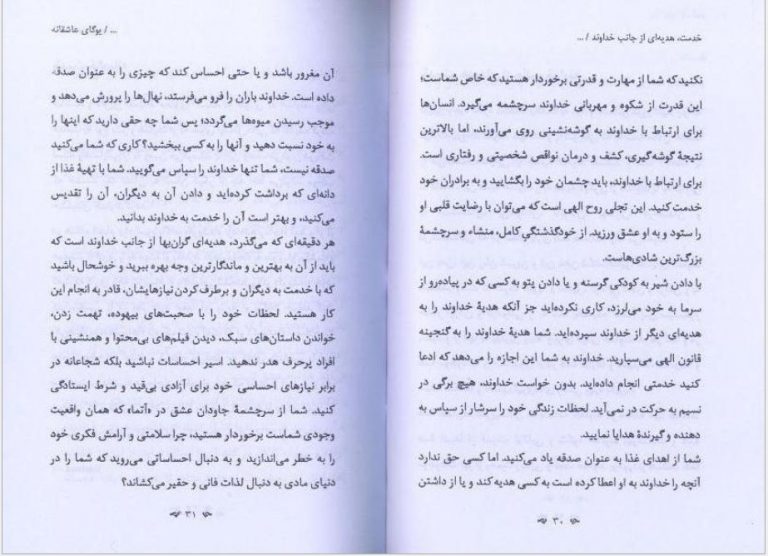 خدمت، هدیه‌ای از جانب خداوند / ...
نکنید که شما از مهارت و قدرتی برخوردار هستید که خاص شماست؛
این قدرت از شکوه و مهربانی خداوند سرچشمه می‌گیرد. انسان‌ها
برای ارتباط با خداوند به گوشه‌نشینی روی می‌آورند، اما بالاترین
نتیجهٔ گوشه‌گیری، کشف و درمان نواقص شخصیتی و رفتاری است.
برای ارتباط با خداوند، باید چشمان خود را بگشایید و به برادران خود
خدمت کنید. این تجلی روح الهی است که می‌توان با رضایت قلبی او
را ستود و به او عشق ورزید. از خودگذشتگیِ کامل، منشاء و سرچشمهٔ
بزرگ‌ترین شادی‌هاست.
با دادن شیر به کودکی گرسنه و یا دادن پتو به کسی که در پیاده‌رو از
سرما به خود می‌لرزد، کاری نکرده‌اید جز آنکه هدیهٔ خداوند را به
هدیه‌ای دیگر از خداوند سپرده‌اید. شما هدیهٔ خداوند را به گنجینه
قانون الهی می‌سپارید. خداوند به شما این اجازه را می‌دهد که ادعا
کنید خدمتی انجام داده‌اید. بدون خواست خداوند، هیچ برگی در
نسیم به حرکت در نمی‌آید. لحظات زندگی خود را سرشار از سپاس به
دهنده و گیرندهٔ هدایا نمایید.
شما از اهدای غذا به عنوان صدقه یاد می‌کنید. اما کسی حق ندارد
آنچه را خداوند به او اعطا کرده است به کسی هدیه کند و یا از داشتن
۳۰
... / یوگای عاشقانه
آن مغرور باشد و یا حتی احساس کند که چیزی را به عنوان صدقه
داده است. خداوند باران را فرو می‌فرستد، نهال‌ها را پرورش می‌دهد و
موجب رسیدن میوه‌ها می‌گردد؛ پس شما چه حقی دارید که اینها را
به خود نسبت دهید و آنها را به کسی ببخشید؟ کاری که شما می‌کنید
صدقه نیست، شما تنها خداوند را سپاس می‌گویید. شما با تهیهٔ غذا از
دانه‌ای که برداشت کرده‌اید و دادن آن به دیگران، آن را تقدیس
می‌کنید، و بهتر است آن را خدمت به خداوند بدانید.
هر دقیقه‌ای که می‌گذرد، هدیه‌ای گران‌بها از جانب خداوند است که
باید از آن به بهترین و ماندگارترین وجه بهره ببرید و خوشحال باشید
که با خدمت به دیگران و برطرف کردن نیازهایشان، قادر به انجام این
کار هستید. لحظات خود را با صحبت‌های بیهوده، تهمت زدن،
خواندن داستان‌های سبک، دیدن فیلم‌های بی‌محتوا و همنشینی با
افراد پرحرف هدر ندهید. اسیر احساسات نباشید بلکه شجاعانه در
برابر نیازهای احساسی خود برای آزادی بی‌قید و شرط ایستادگی
کنید. شما از سرچشمهٔ جاودان عشق در «آتما» که همان واقعیت
وجودی شماست برخوردار هستید، چرا سلامتی و آرامش فکری خود
را به خطر می‌اندازید و به دنبال احساساتی می‌روید که شما را در
دنیای مادی به دنبال لذات فانی و حقیر می‌کشاند؟
۳۱